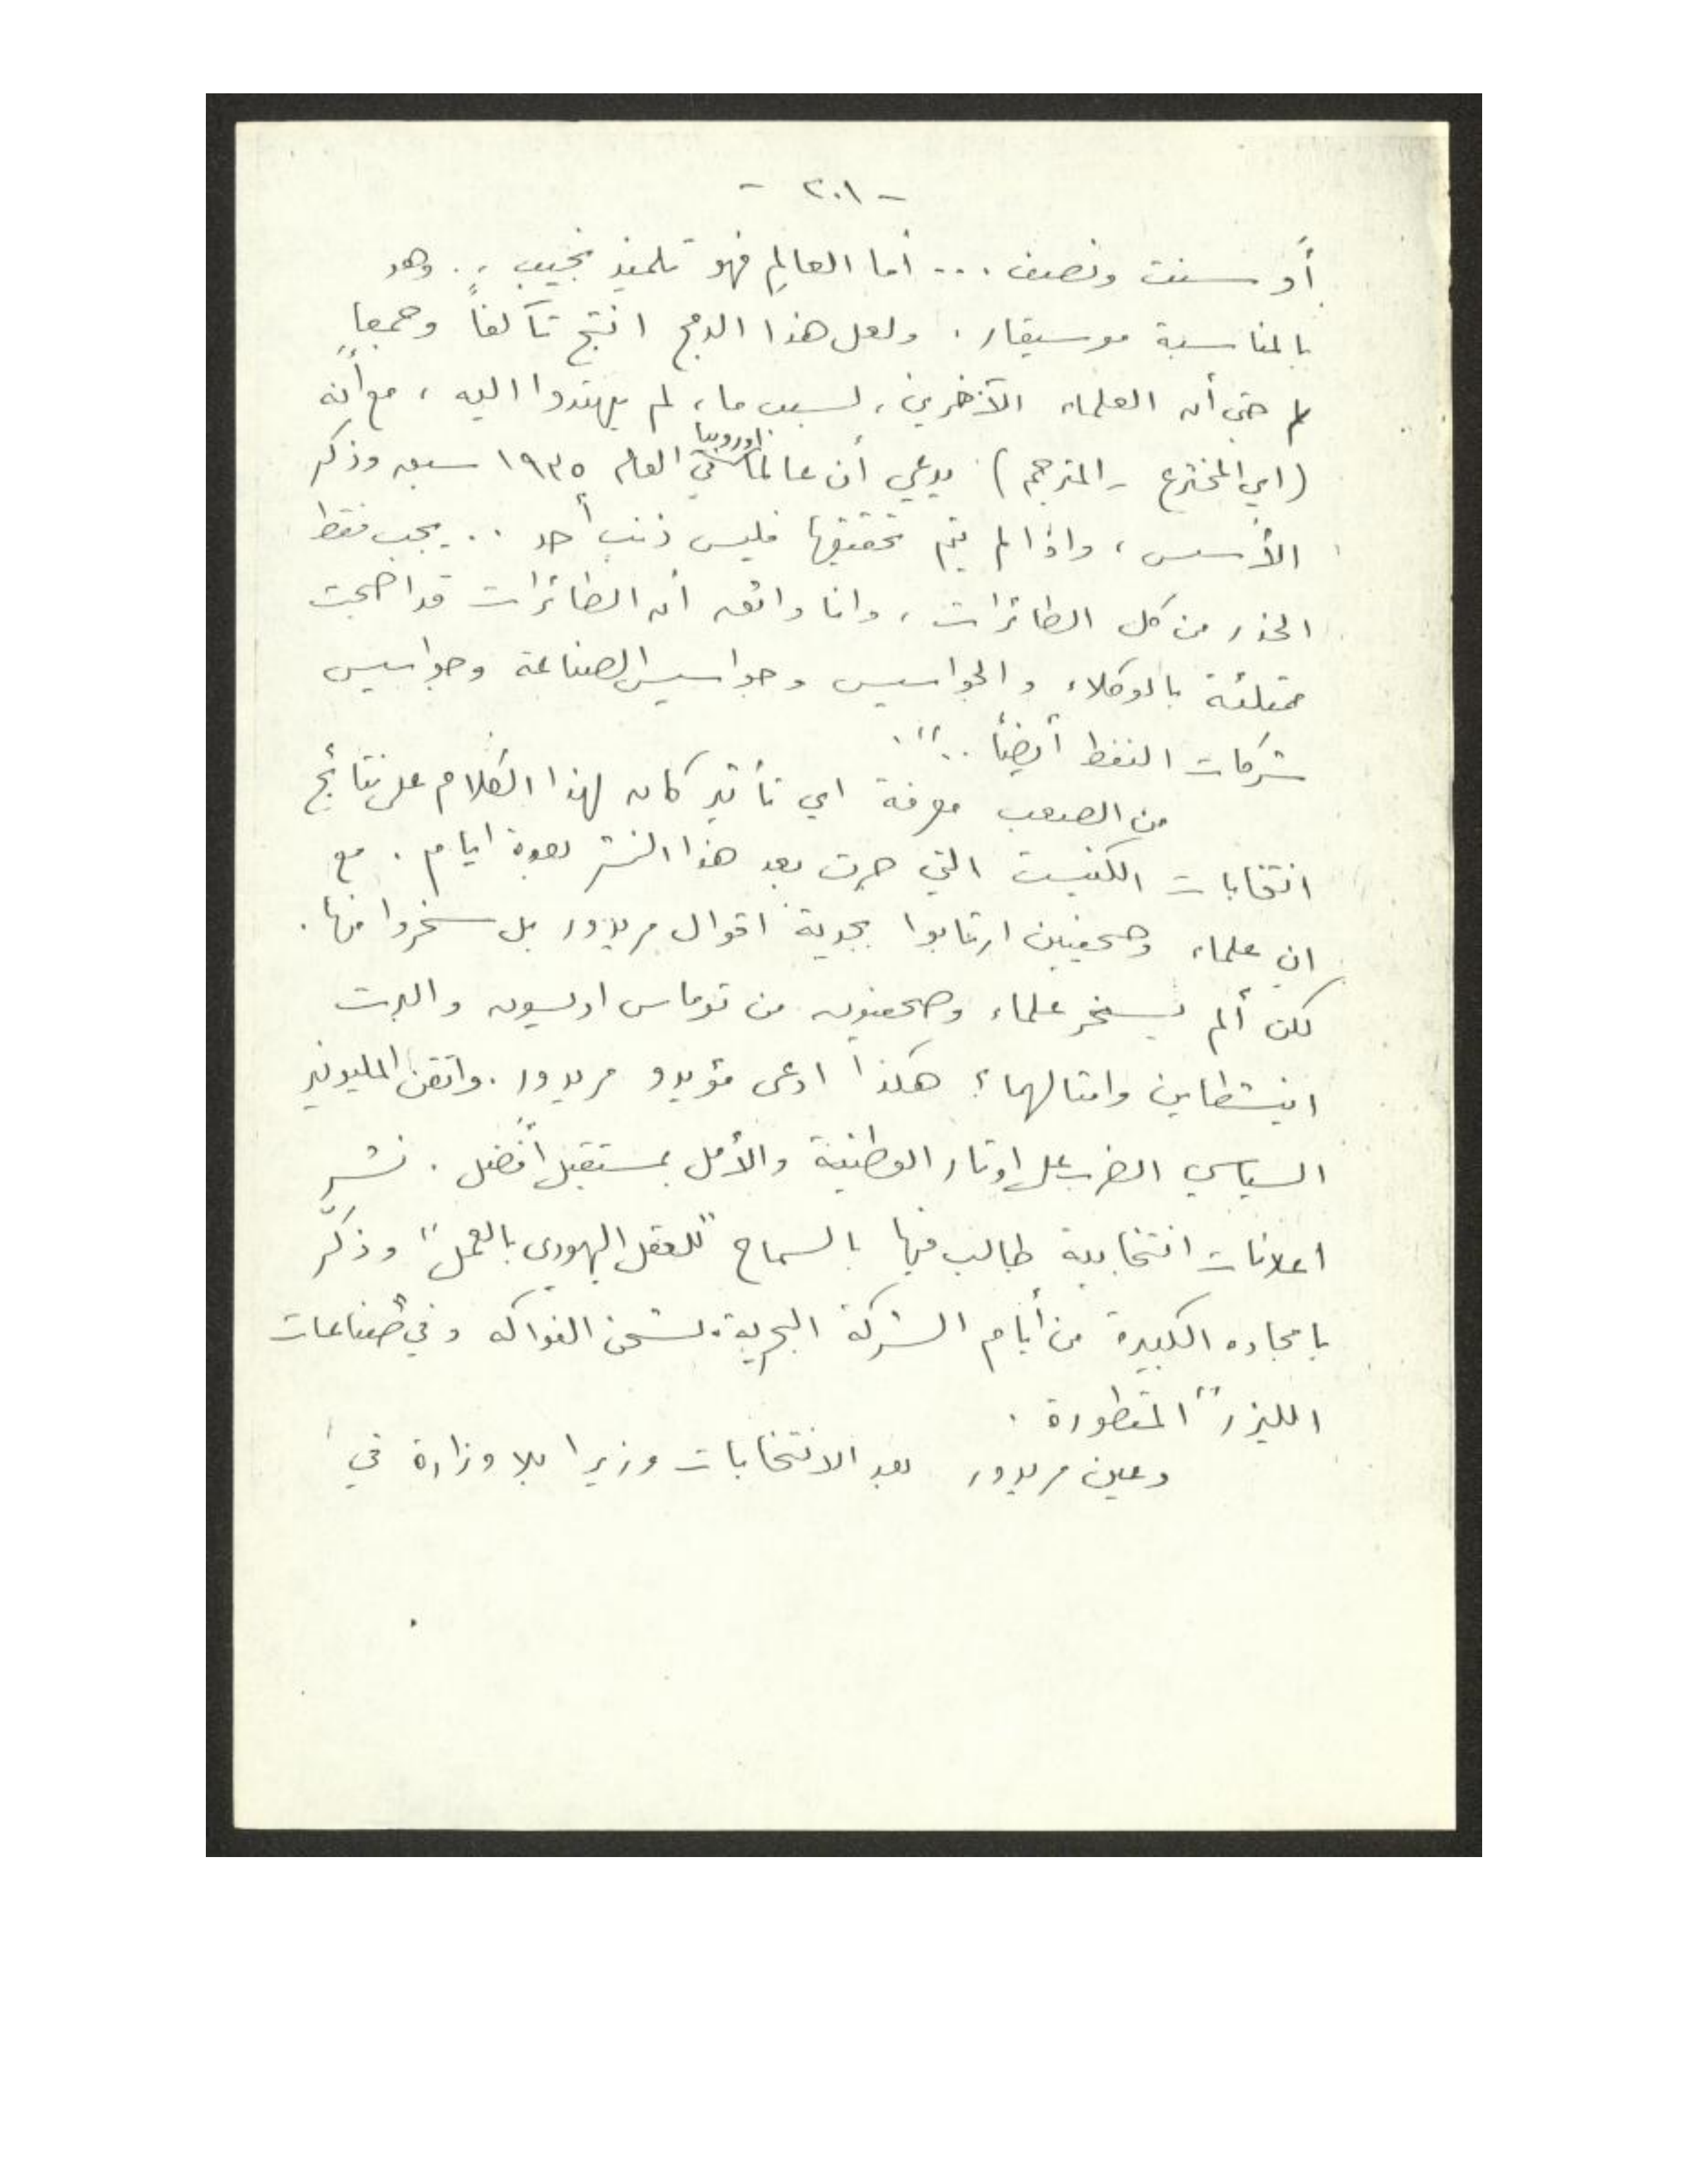 - ٢٠١ -
أو سنت ونصف ... أما العالِم فهو تلميذ نجيب .. وهو
بالمناسبة موسيقار . ولعل هذا الدمج انتج تآلفاً وجمعاً
حتى أن العلماء الآخرين ، لسبب ما ، لم يهتدوا اليه ، مع أنه
(اي المخترع - المترجم) يدعي أن عالماً اوروبيا في العام ١٩٣٥ سبق وذكر
الأسس ، واذا لم يتم تحقيقها فليس ذنب أحد .. يجب فقط
الحذر من كل الطائرات ، وانا واثق أن الطائرات قد اضحت
ممتلئة بالوكلاء والجواسيس وجواسيس الصناعة وجواسيس
شركات النفط أيضاً .." .
من الصعب معرفة اي تأثير كان لهذا الكلام على نتائج
انتخابات الكنيست التي جرت بعد هذا النشر بعدة ايام . مع
ان علماء وصحفيين ارتابوا بجدية اقوال مريدور بل سخروا منها .
لكن ألم يسخر علماء وصحفيون من توماس اديسون والبرت
اينشطاين وامثالهما ؟ هكذا ادعى مؤيدو مريدور . واتقن المليونير
السياسي الضرب على اوتار الوطنية والأمل بمستقبل أفضل . نشر
اعلانات انتخابية طالب فيها بالسماح "للعقل اليهودي بالعمل" وذكّر
بامجاده الكبيرة من أيام الشركة البحرية لشحن الفواكه وفي "صناعات
الليزر" المتطورة .
وعين مريدور بعد الانتخابات وزيرا بلا وزارة في